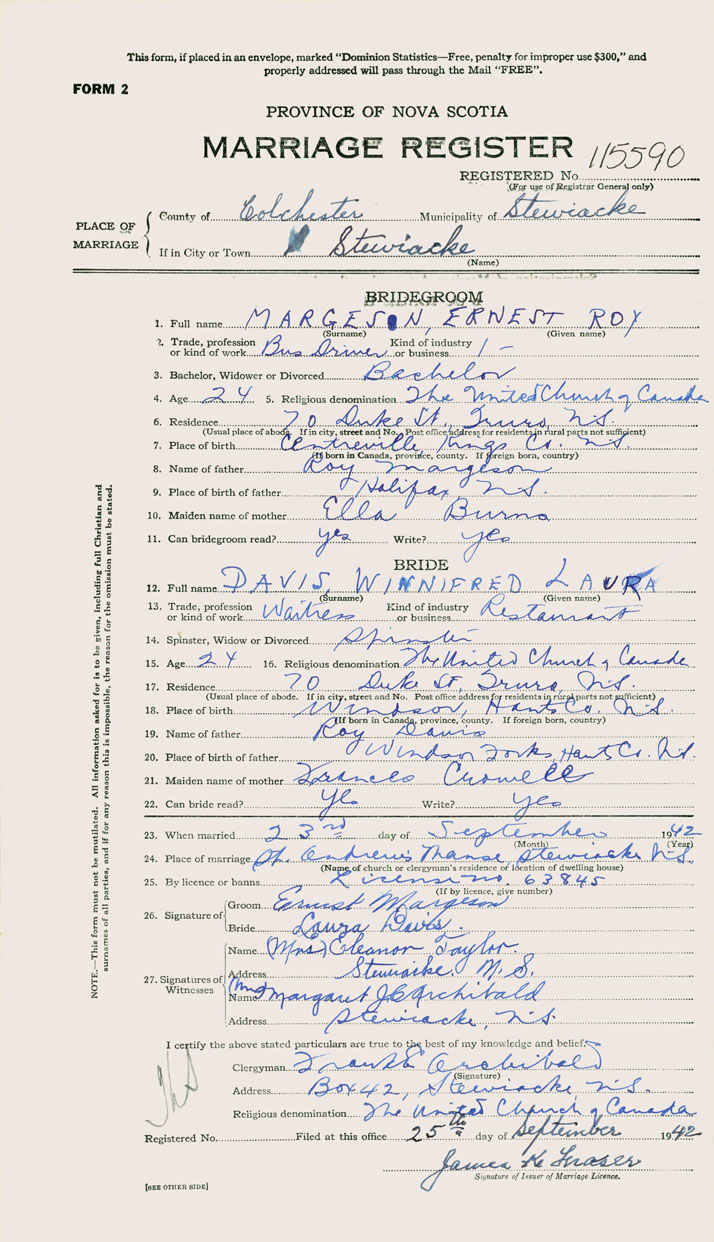 This form, if placed in an envelope, marked "Dominion Statistics—Free, penalty for improper use $300," and
properly addressed will pass through the Mail "FREE".
FORM 2
PROVINCE OF NOVA SCOTIA
MARRIAGE REGISTER 115590
REGISTERED No.
(For use of Registrar General only)
PLACE OF MARRIAGE
County of Colchester Municipality of Stewiacke
If in City or Town Stewiacke
(Name)
BRIDEGROOM
1. Full name MARGESON, ERNEST ROY
(Surname) (Given name)
2. Trade, profession or kind of work Bus Driver Kind of industry or business 1 -
3. Bachelor, Widower or Divorced Bachelor
4. Age 24 5. Religious denomination The United Church of Canada
6. Residence 70 Duke St., Truro, N.S.
(Usual place of abode. If in city, street and No. Post office address for residents in rural parts not sufficient)
7. Place of birth Centreville, Kings Co. N.S.
(If born in Canada, province, county. If foreign born, country)
8. Name of father Roy Margeson
9. Place of birth of father Halifax N.S.
10. Maiden name of mother Ella Burns
11. Can bridegroom read? yes Write? yes
BRIDE
12. Full name DAVIS, WINNIFRED LAURA
(Surname) (Given name)
13. Trade, profession or kind of work Waitress Kind of industry or business Restaurant
14. Spinster, Widow or Divorced Spinster
15. Age 24 16. Religious denomination The United Church of Canada
17. Residence 70 Duke St., Truro N.S.
(Usual place of abode. If in city, street and No. Post office address for residents in rural parts not sufficient)
18. Place of birth Windsor, Hants Co. N.S.
(If born in Canada, province, county. If foreign born, country)
19. Name of father Roy Davis
20. Place of birth of father Windsor Forks, Hants Co. N.S.
21. Maiden name of mother Frances Crowell
22. Can bride read? Yes Write? yes
23. When married 23rd day of September 1942
(Month) (Year)
24. Place of marriage St. Andrew's Manse, Stewiacke N.S.
(Name of church or clergyman's residence or location of dwelling house)
25. By licence or banns License no. 63845
(If by licence, give number)
26. Signature of
Groom Ernest Margeson
Bride Laura Davis.
27. Signatures of Witnesses
Name (Mrs) Eleanor Taylor.
Address Stewiacke. N.S.
Name (Mrs) Margaret J C Archibald
Address Stewiacke, N.S.
I certify the above stated particulars are true to the best of my knowledge and belief.
Clergyman Frank Archibald
(Signature)
Address Box 42, Stewiacke, N.S.
Religious denomination The United Church of Canada
Registered No. Filed at this office 25th day of September 1942
James K Fraser
Signature of Issuer of Marriage Licence.
[SEE OTHER SIDE]
NOTE.—This form must not be mutilated. All information asked for is to be given, including full Christian and
surnames of all parties, and if for any reason this is impossible, the reason for the omission must be stated.